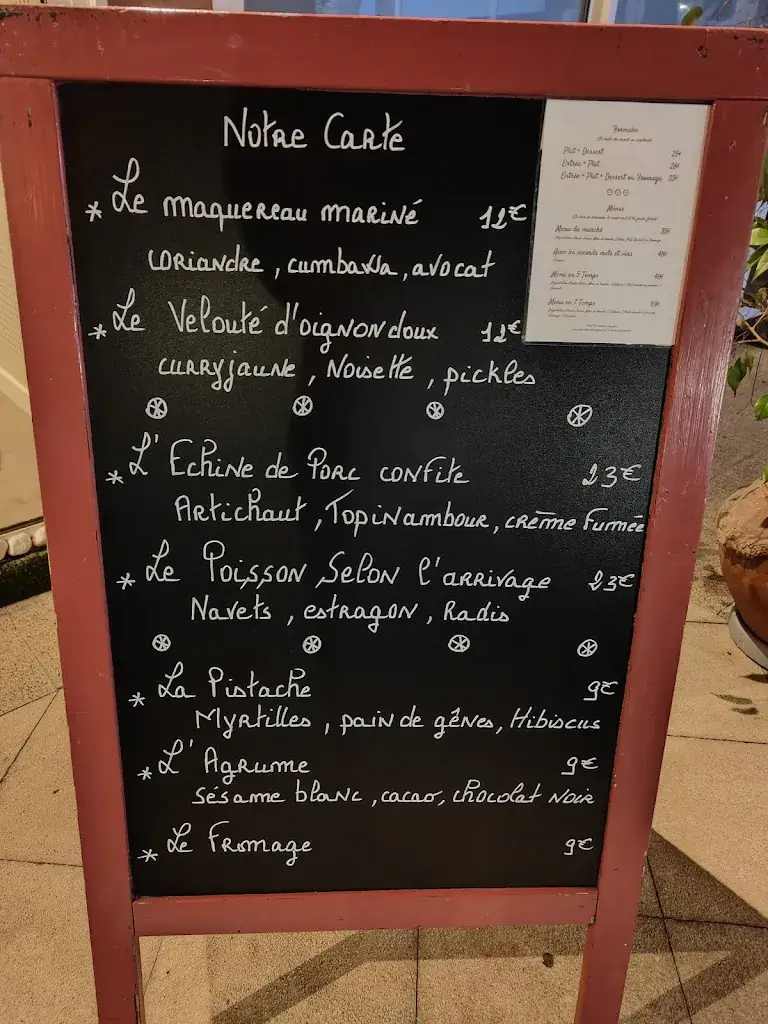 Notre Carte
* Le maquereau mariné 12€
coriandre, cumbawa, avocat
* Le Velouté d'oignon doux 12€
curry jaune, Noisette, pickles
* L'Echine de Porc confite 23€
Artichaut, Topinambour, crème fumée
* Le Poisson Selon l'arrivage 23€
Navets, estragon, Radis
* La Pistache 9€
Myrtilles, pain de gênes, Hibiscus
* L'Agrume 9€
sésame blanc, cacao, chocolat noir
* Le Fromage 9€
Formules
Plat + Dessert
Entrée + Plat
Entrée + Plat + Dessert ou Fromage
Menus
Menu du marché
Avec les accords mets et vins
Menu en 5 Temps
Menu en 7 Temps